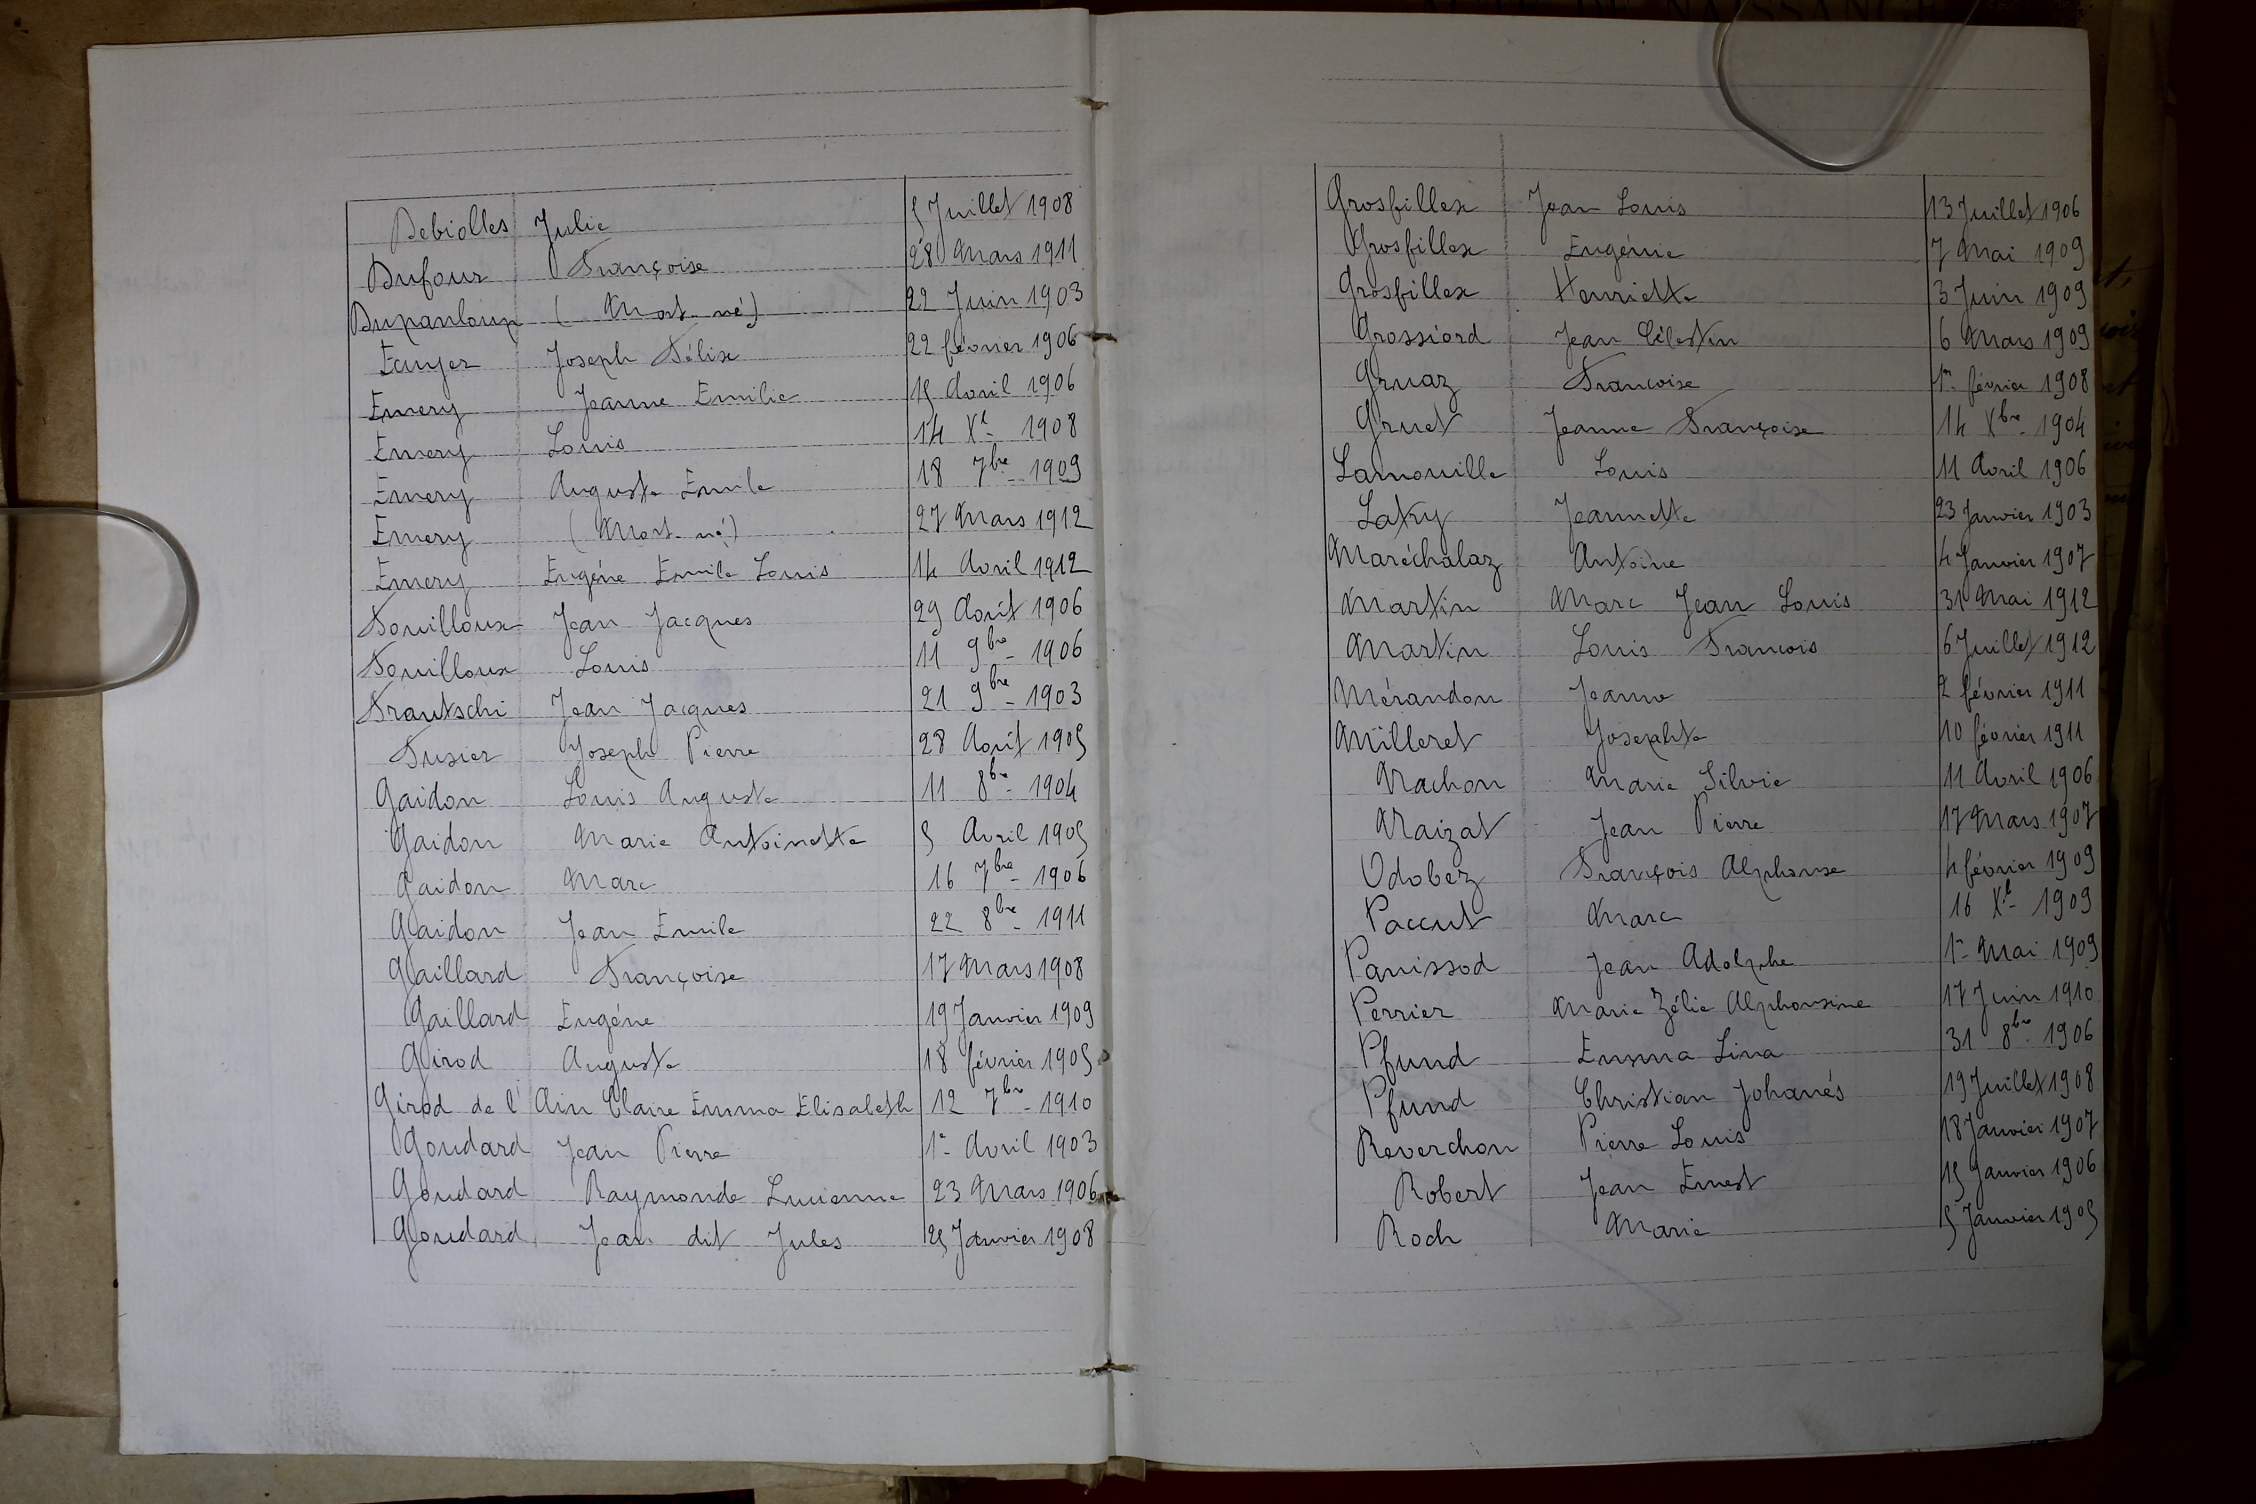 Debiolles Julie 5 Juillet 1908
Dufour Françoise 28 Mars 1911
Dupanloup (Mort-né) 22 Juin 1903
Ecuyer Joseph Félix 22 février 1906
Emery Jeanne Emilie 15 Avril 1906
Emery Louis 14 Xe 1908
Emery Auguste Emile 18 7bre 1909
Emery (Mort-né) 27 Mars 1912
Emery Eugène Emile Louis 14 Avril 1912
Fouilloux Jean Jacques 29 Août 1906
Fouilloux Louis 11 9bre 1906
Frautschi Jean Jacques 21 9bre 1903
Fusier Joseph Pierre 28 Août 1905
Gaidon Louis Auguste 11 8bre 1904
Gaidon Marie Antoinette 5 Avril 1905
Gaidon Marc 16 7bre 1906
Gaidon Jean Emile 22 8bre 1911
Gaillard Françoise 17 Mars 1908
Gaillard Eugène 19 Janvier 1909
Girod Auguste 18 février 1905
Girod de l'Ain Claire Emma Elisabeth 12 7bre 1910
Goudard Jean Pierre 1er Avril 1903
Goudard Raymonde Lucienne 23 Mars 1906
Goudard Jean dit Jules 25 Janvier 1908
Grosfillex Jean Louis 13 Juillet 1906
Grosfillex Eugénie 7 Mai 1909
Grosfillex Henriette 3 Juin 1909
Grossiord Jean Célestin 6 Mars 1909
Gruaz Francoise 1er février 1908
Gruet Jeanne Françoise 14 Xbre 1904
Lamouille Louis 11 Avril 1906
Latry Jeannette 23 Janvier 1903
Maréchalaz Antoine 4 Janvier 1907
Martin Marc Jean Louis 31 Mai 1912
Martin Louis Francois 6 Juillet 1912
Mérandon Jeanne 2 février 1911
Milleret Josephte 10 février 1911
Nachon Marie Silvie 11 Avril 1906
Naizat Jean Pierre 17 Mars 1907
Odobez François Alphonse 4 février 1909
Paccut Marc 16 Xe 1909
Panissod Jean Adolphe 1er Mai 1909
Perrier Marie Zélie Alphonsine 17 Juin 1910
Pfund Emma Lina 31 8bre 1906
Pfund Christian Johanés 19 Juillet 1908
Reverchon Pierre Louis 18 Janvier 1907
Robert Jean Ernest 15 Janvier 1906
Roch Marie 5 Janvier 1905